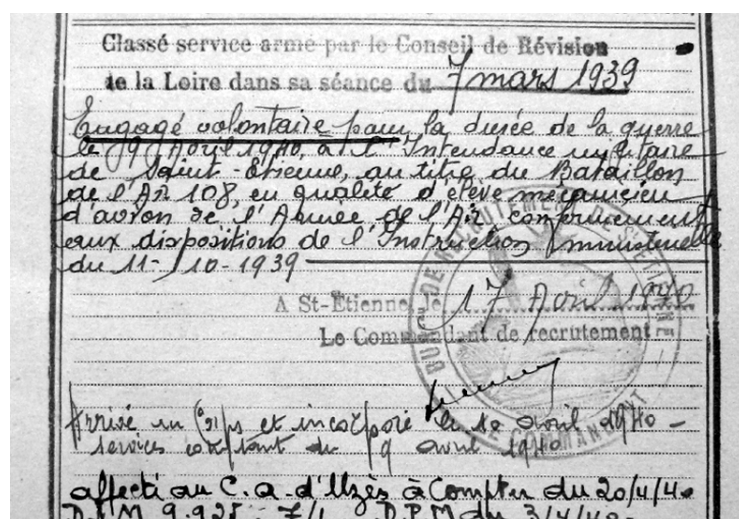 Classé service armé par le Conseil de Révision
de la Loire dans sa séance du 7 mars 1939
Engagé volontaire pour la durée de la guerre
le 9 Avril 1940, à l'Intendance militaire
de Saint-Etienne, au titre du Bataillon
de l'Air 108, en qualité d'élève mécanicien
d'avion de l'Armée de l'Air conformément
aux dispositions de l'Instruction Ministérielle
du 11-10-1939
A St-Étienne, le 17 Avril 1940
Le Commandant de recrutement
BUREAU DE RECRUTEMENT DE ST-ETIENNE
LE COMMANDANT
Arrivé au Corps et incorporé le 10 avril 1940 -
services comptant du 9 avril 1940
affecté au C.A. d'Uzès à compter du 20/4/40
D.P.M 9.925 - 7/1 D.P.M du 3/4/40